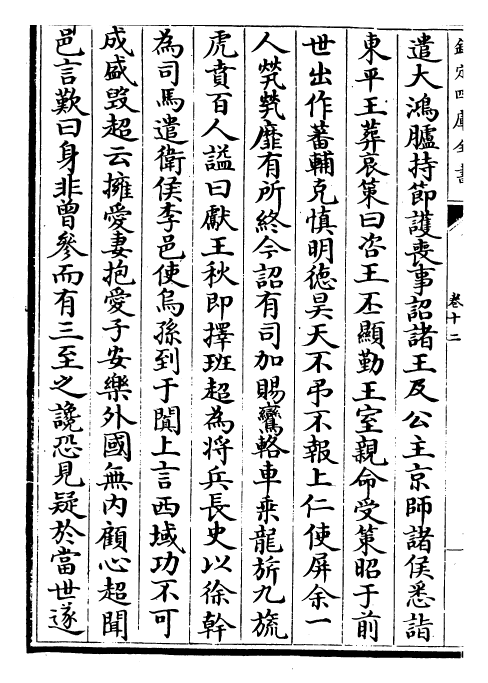 欽定四庫全書
卷十二
遣大鴻臚持節護喪事詔諸王及公主京師諸侯悉詣
東平王葬哀策曰咨王丕顯勤王室親命受策昭于前
世出作蕃輔克慎明徳昊天不弔不報上仁使屏余一
人煢煢靡有所終今詔有司加賜鸞輅車乗龍旂九旒
虎賁百人諡曰獻王秋即擇班超為将兵長史以徐幹
為司馬遣衛侯李邑使烏孫到于闐上言西域功不可
成盛毁超云擁愛妻抱愛子安樂外國無内顧心超聞
邑言歎曰身非曾參而有三至之讒恐見疑於當世遂